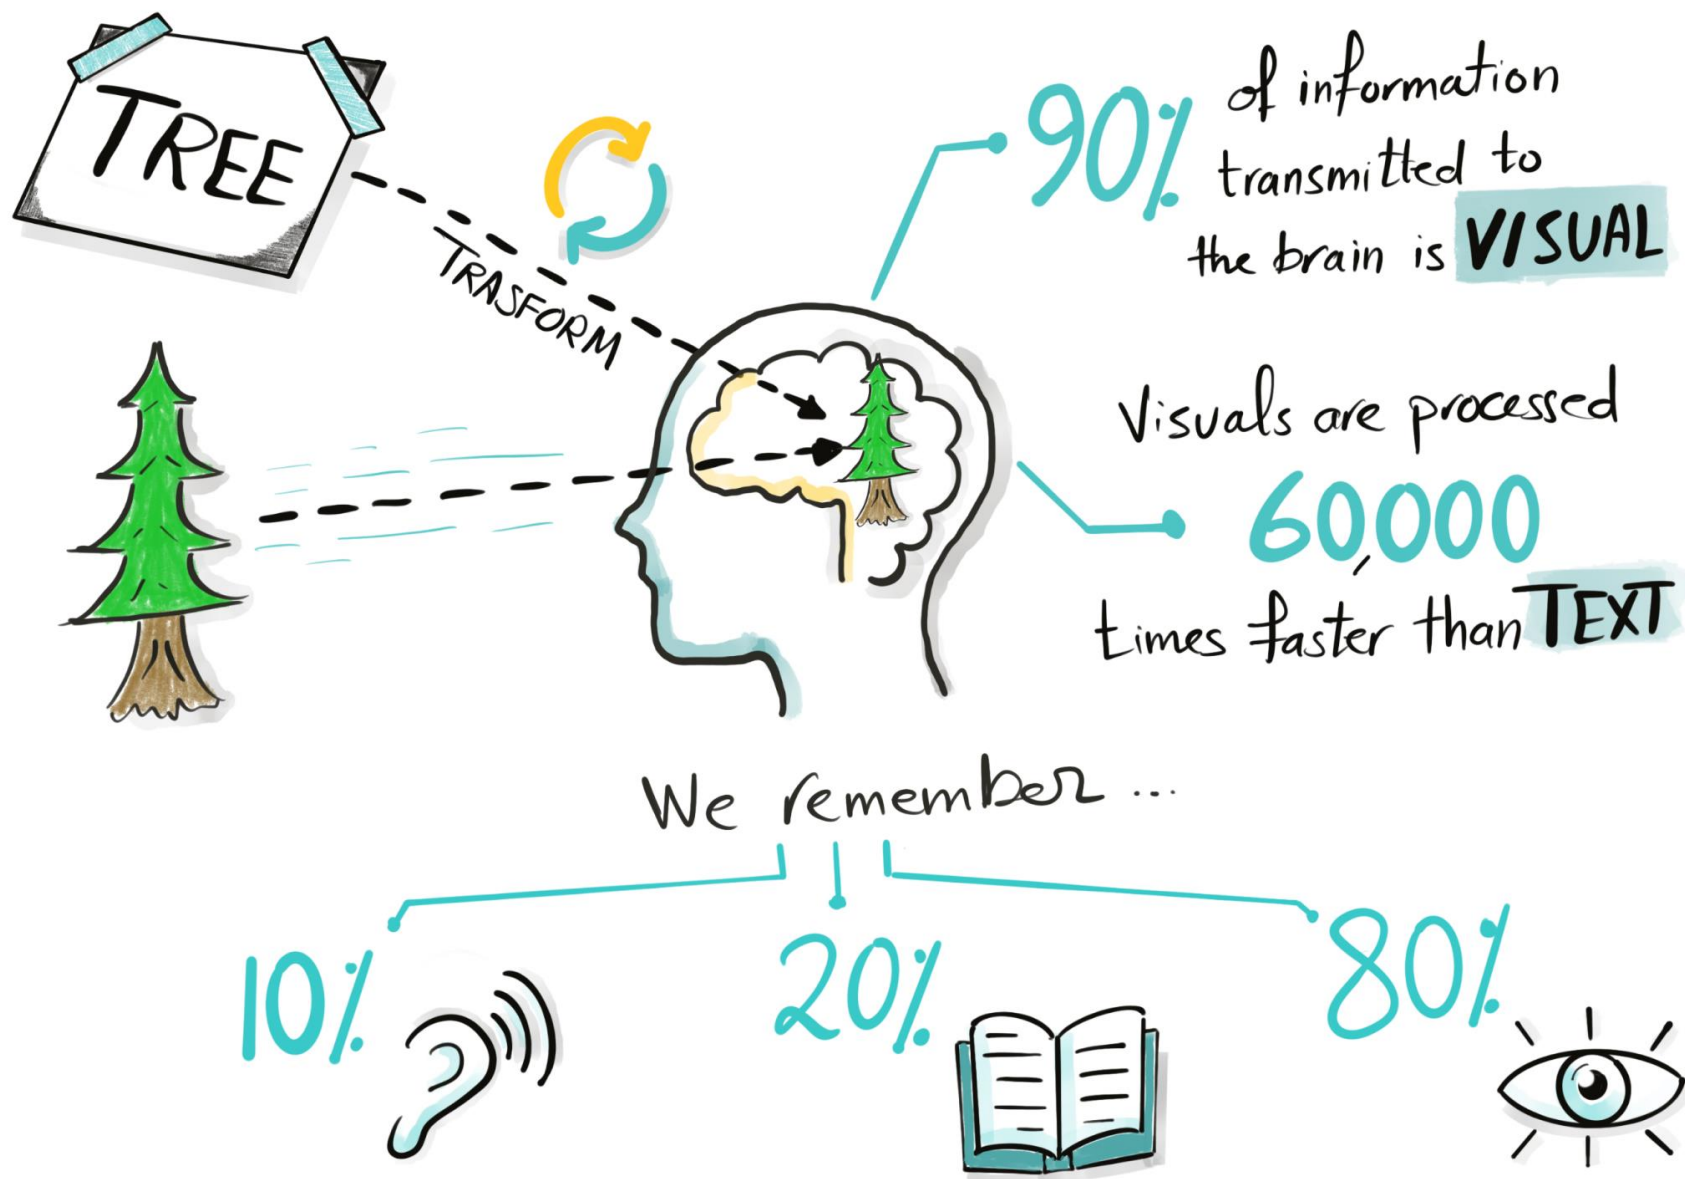 TREE
TRASFORM
90% of information
transmitted to
the brain is VISUAL
Visuals are processed
60,000
times faster than TEXT
We remember ...
10%
20%
80%